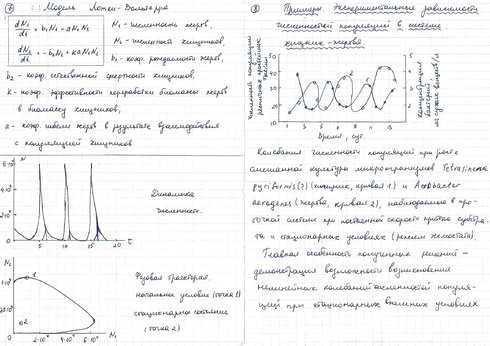 ⑦ Модель Лотки-Вольтерра
dN₁/dt = b₁N₁ - aN₁N₂
dN₂/dt = -b₂N₂ + kaN₁N₂
N₁ - численность жертв,
N₂ - численность хищников,
b₁ - коэф. рождаемости жертв,
b₂ - коэф. естественной смертности хищников,
k - коэф. эффективности переработки биомассы жертв
в биомассу хищников,
a - коэф. гибели жертв в результате взаимодействия
с популяцией хищников
N
6·10
4·10
2·10
0
5 10 15 20 t
Динамика
численности.
N₂
1
2
0
2·10 4·10 6·10 N₁
Фазовая траектория,
начальное условие (точка 1)
стационарное состояние
(точка 2)
⑧ Примеры. Экспериментальные зависимости
численностей популяций в системе
хищник-жертва.
50
40
30
20
10
5
4
3
2
1
1 3 5 7 9 11 13
Время, сут.
Колебания численности популяций при росте
смешанной культуры микроорганизмов Tetrahimena
pyriformis (хищник, кривая 1) и Aerobacter
aerogenes (жертва, кривая 2), наблюдаемые в про-
точной системе при постоянной скорости притока субстра-
та и стационарных условиях (режим хемостата).
Главная особенность полученных решений -
демонстрация возможности возникновения
нелинейных колебаний численностей популя-
ций при стационарных внешних условиях